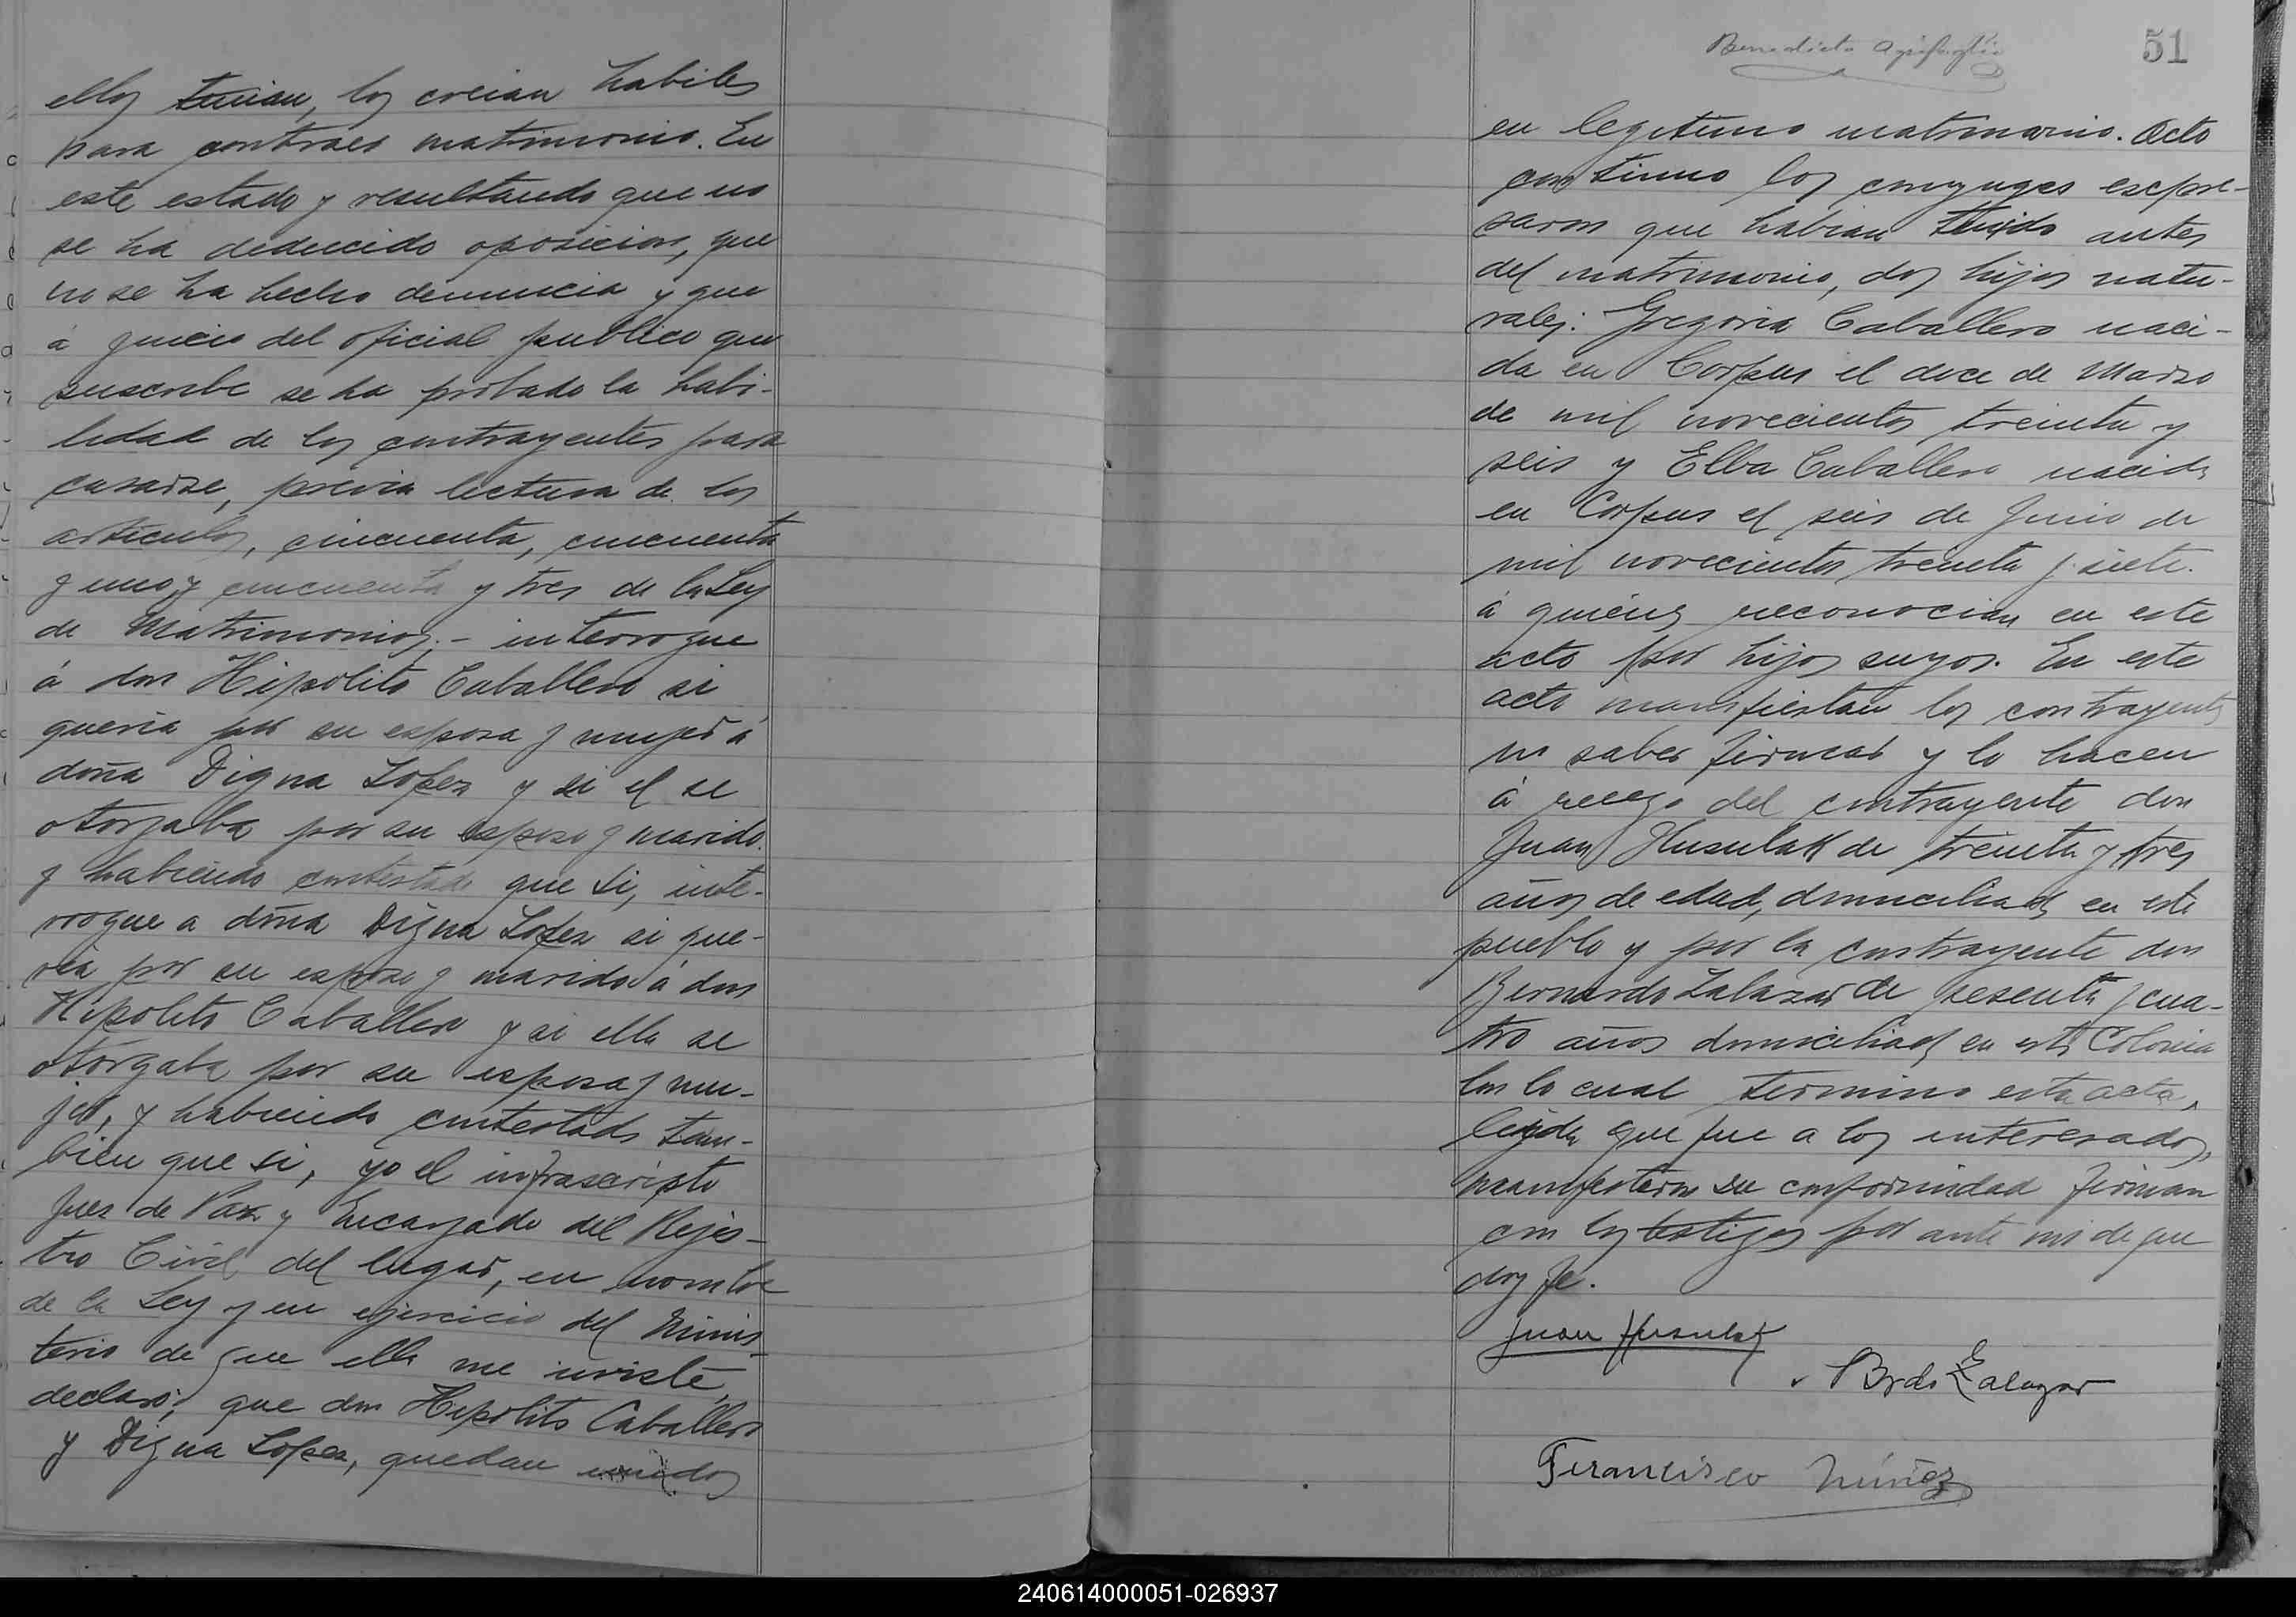 ellos tenian, los creian habiles
para contraer matrimonio. En
este estado y resultando que no
se ha deducido oposicion, que
no se ha hecho denuncia y que
á juicio del oficial publico que
suscribe se ha probado la habi-
lidad de los contrayentes para
casarse, previa lectura de los
articulos, cincuenta, cincuenta
y uno y cincuenta y tres de la Ley
de Matrimonios.- interrogue
á don Hipolito Caballero si
queria por su esposa y mujer á
doña Digna Lopez y si el se
otorgaba por su esposo y marido.
y habiendo contestado que si, inte-
rrogue a doña Digna Lopez si que-
ria por su esposo y marido á don
Hipolito Caballero y si ella se
otorgaba por su esposa y mu-
jer, y habiendo contestado tam-
bien que si, yo el infrascripto
Juez de Paz y Encargado del Rejis-
tro Civil del lugar, en nombre
de la Ley y en ejercicio del Minis-
terio de que ella me inviste,
declaro; que don Hipolito Caballero
y Digna Lopez, quedan unidos
Benedicto
51
en legitimo matrimonio. Acto
continuo los conyuges escpre-
saron que habian tenido antes
del matrimonio, dos hijos natu-
rales: Gregoria Caballero naci-
da en Corpus el doce de Marzo
de mil novecientos treinta y
seis y Elba Caballero nacida
en Corpus el seis de Junio de
mil novecientos treinta y siete.
á quienes reconocian en este
acto por hijos suyos. En este
acto manifiestan los contrayentes
no saber firmar y lo hacen
á ruego del contrayente don
Juan Husulak de treinta y tres
años de edad, domiciliado en este
pueblo y por la contrayente don
Bernardo Zalazar de sesenta y cua-
tro años domiciliado en esta Colonia
Con lo cual termino esta acta,
leida que fue a los interesados,
manifestaron su conformidad firman
con los testigos por ante mi de que
doy fe.
Juan Husulak
Brdo E Zalazar
Francisco Núñez
240614000051-026937